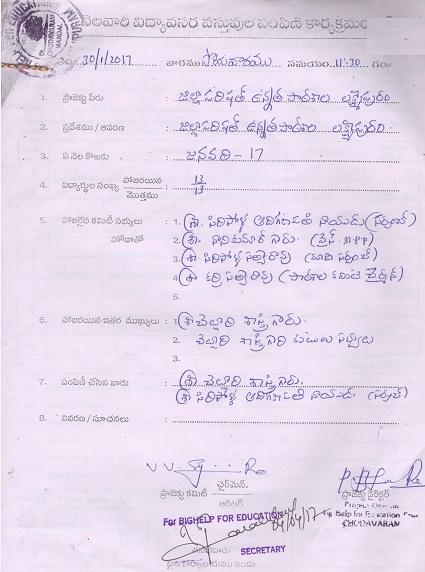 నెలవారి విద్యావసర వస్తువుల పంపిణి కార్యక్రమం
30/1/2017 వారము సోమవారము సమయం 11:30 గం
1. ప్రాజెక్టు పేరు : జిల్లాపరిషత్ ఉన్నత పాఠశాల లక్ష్మీపురం
2. ప్రదేశము / ఆవరణ : జిల్లాపరిషత్ ఉన్నత పాఠశాల లక్ష్మీపురం.
3. ఏ నెల కొఱకు : జనవరి - 17
4. విద్యార్థుల సంఖ్య హాజరయిన 13
మొత్తము 13
5. హాజరైన కమిటీ సభ్యులు : 1. శ్రీ. సిరిపోళ్ల ఆదిగణపతి నాయుడు (సర్పంచ్)
హోదాతో 2. శ్రీ. నానికుమార్ గారు. (వైస్. M.P.P)
3. శ్రీ సిరిపోళ్ల సత్యారావు (మాజి సర్పంచ్)
4. శ్రీ కర్రి సత్యారావు (పాఠశాల కమిటి ఛైర్మన్)
5.
6. హాజరయిన ఇతర ముఖ్యులు : 1. శ్రీ చెల్లూరి శాస్త్రి గారు.
2. చెల్లూరి శాస్త్రి గారి కుటుంబ సభ్యులు
3.
7. పంపిణీ చేసిన వారు : శ్రీ చెల్లూరి శాస్త్రి గారు.
శ్రీ సిరిపోళ్ల ఆదిగణపతి నాయుడు (సర్పంచ్)
8. వివరణ / సూచనలు :
ప్రాజెక్టు కమిటీ ఛైర్‌మెన్.
ఆడిటర్
ప్రాజెక్టు డైరెక్టర్
Project Director
Big Help for Education
CHODAVARAM
For BIGHELP FOR EDUCATION
04/04/17
SECRETARY